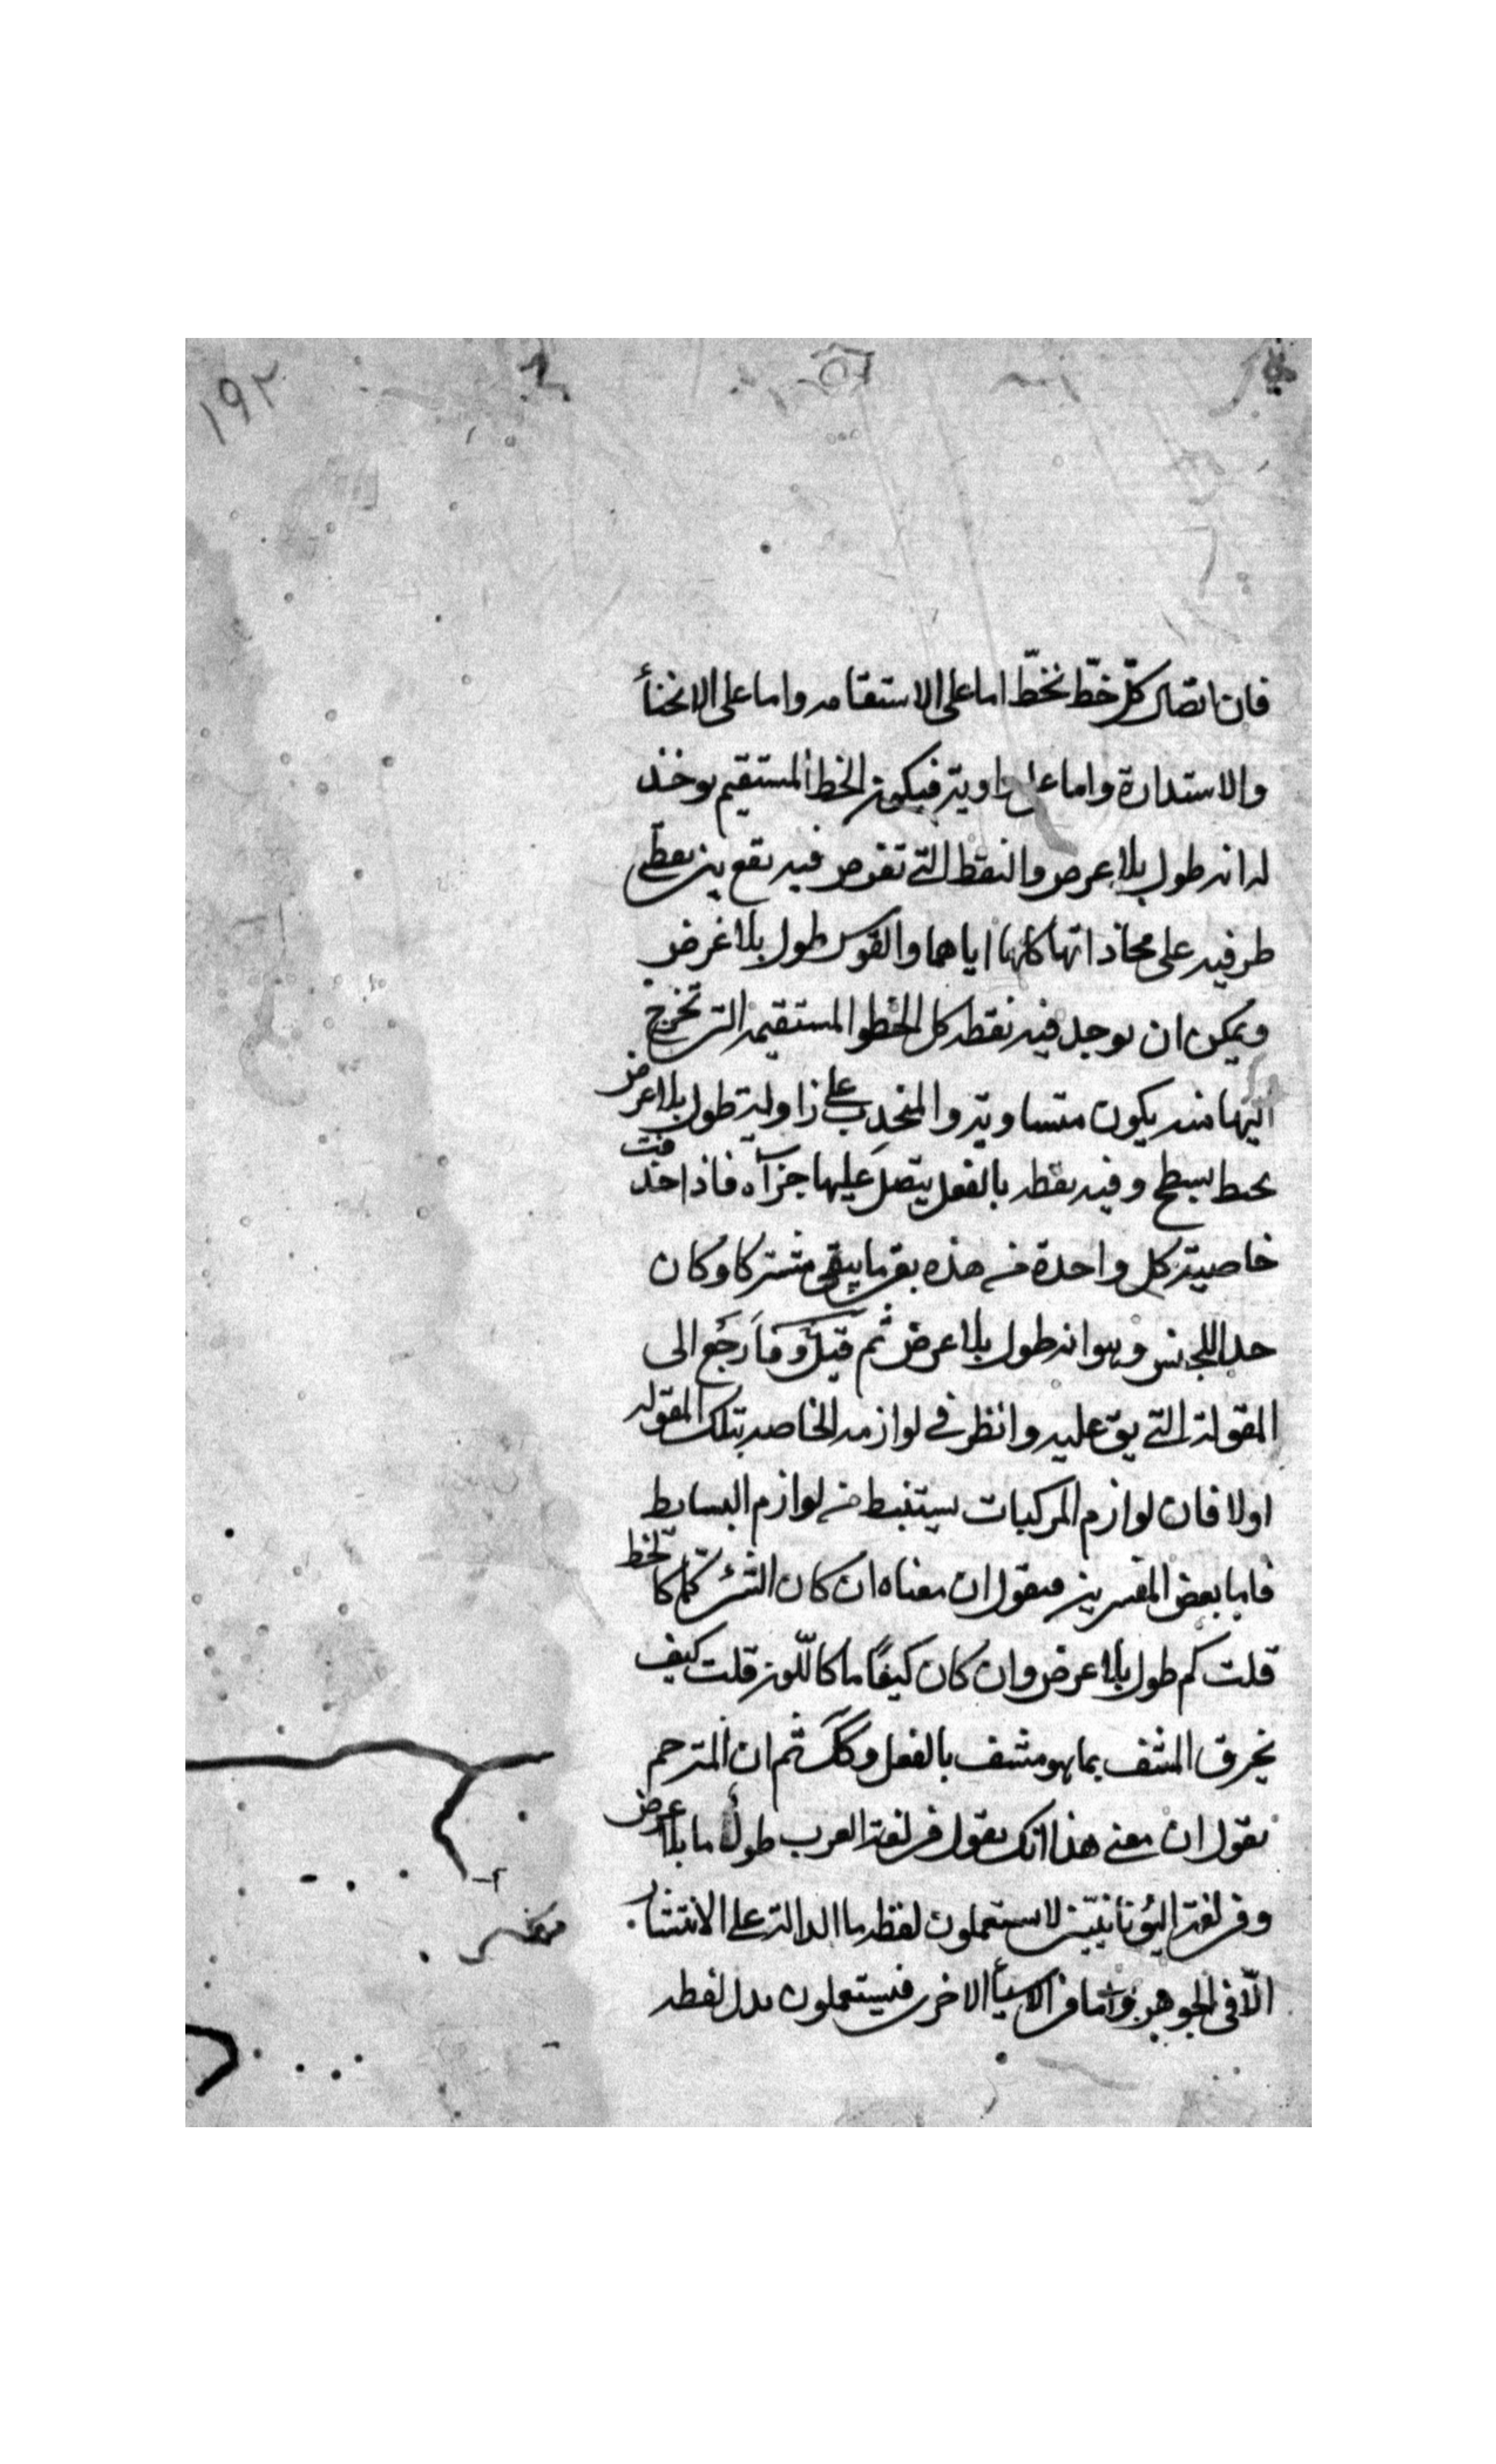 ١٩٢
فان اتصال كلّ خطّ بخطّ اما على الاستقامه واما على الانحنأ
والاستدارة واما على زاوية فيكون الخط المستقيم يوخذ
له انه طول بلا عرض والنقط التي تفرض فيه تقع بين نقطتى
طرفيه على محاذاتها كانها اياهما والقوس طول بلا عرض
ويمكن ان يوجد فيه نقطه كل الخطوط المستقيمه التى تخرج
اليها منه يكون متساوية والمنحدب على زاوية طول بلا عرض
يحيط بسطح وفيه نقطه بالفعل يتصل عليها جزآه فاذا حذفت
خاصية كل واحدة من هذه بقى ما يبقى مشتركا وكان
حدا للجنس وهو انه طول بلا عرض ثم قيل وما رجع الى
المقولة التي يق عليه وانظر في لوازمه الخاصه بتلك المقوله
اولا فان لوازم المركبات يستنبط من لوازم البسايط
فاما بعض المفسرين فيقول ان معناه ان كان الشئ كمّا كالخط
قلت كم طول بلا عرض وان كان كيفًا ما كاللّون قلت كيف
يخرق المشف بما هو مشف بالفعل وكك ثم ان المترجم
يقول ان معنى هذا انك تقول فى لغة العرب طولٌ ما بلا عرض
وفى لغة اليونانيّين لا يستعملون لفظه ما الدالة على الانتشار
الّا فى الجوهر واما فى الاشيأ الاخرى فيستعملون بدل لفظه